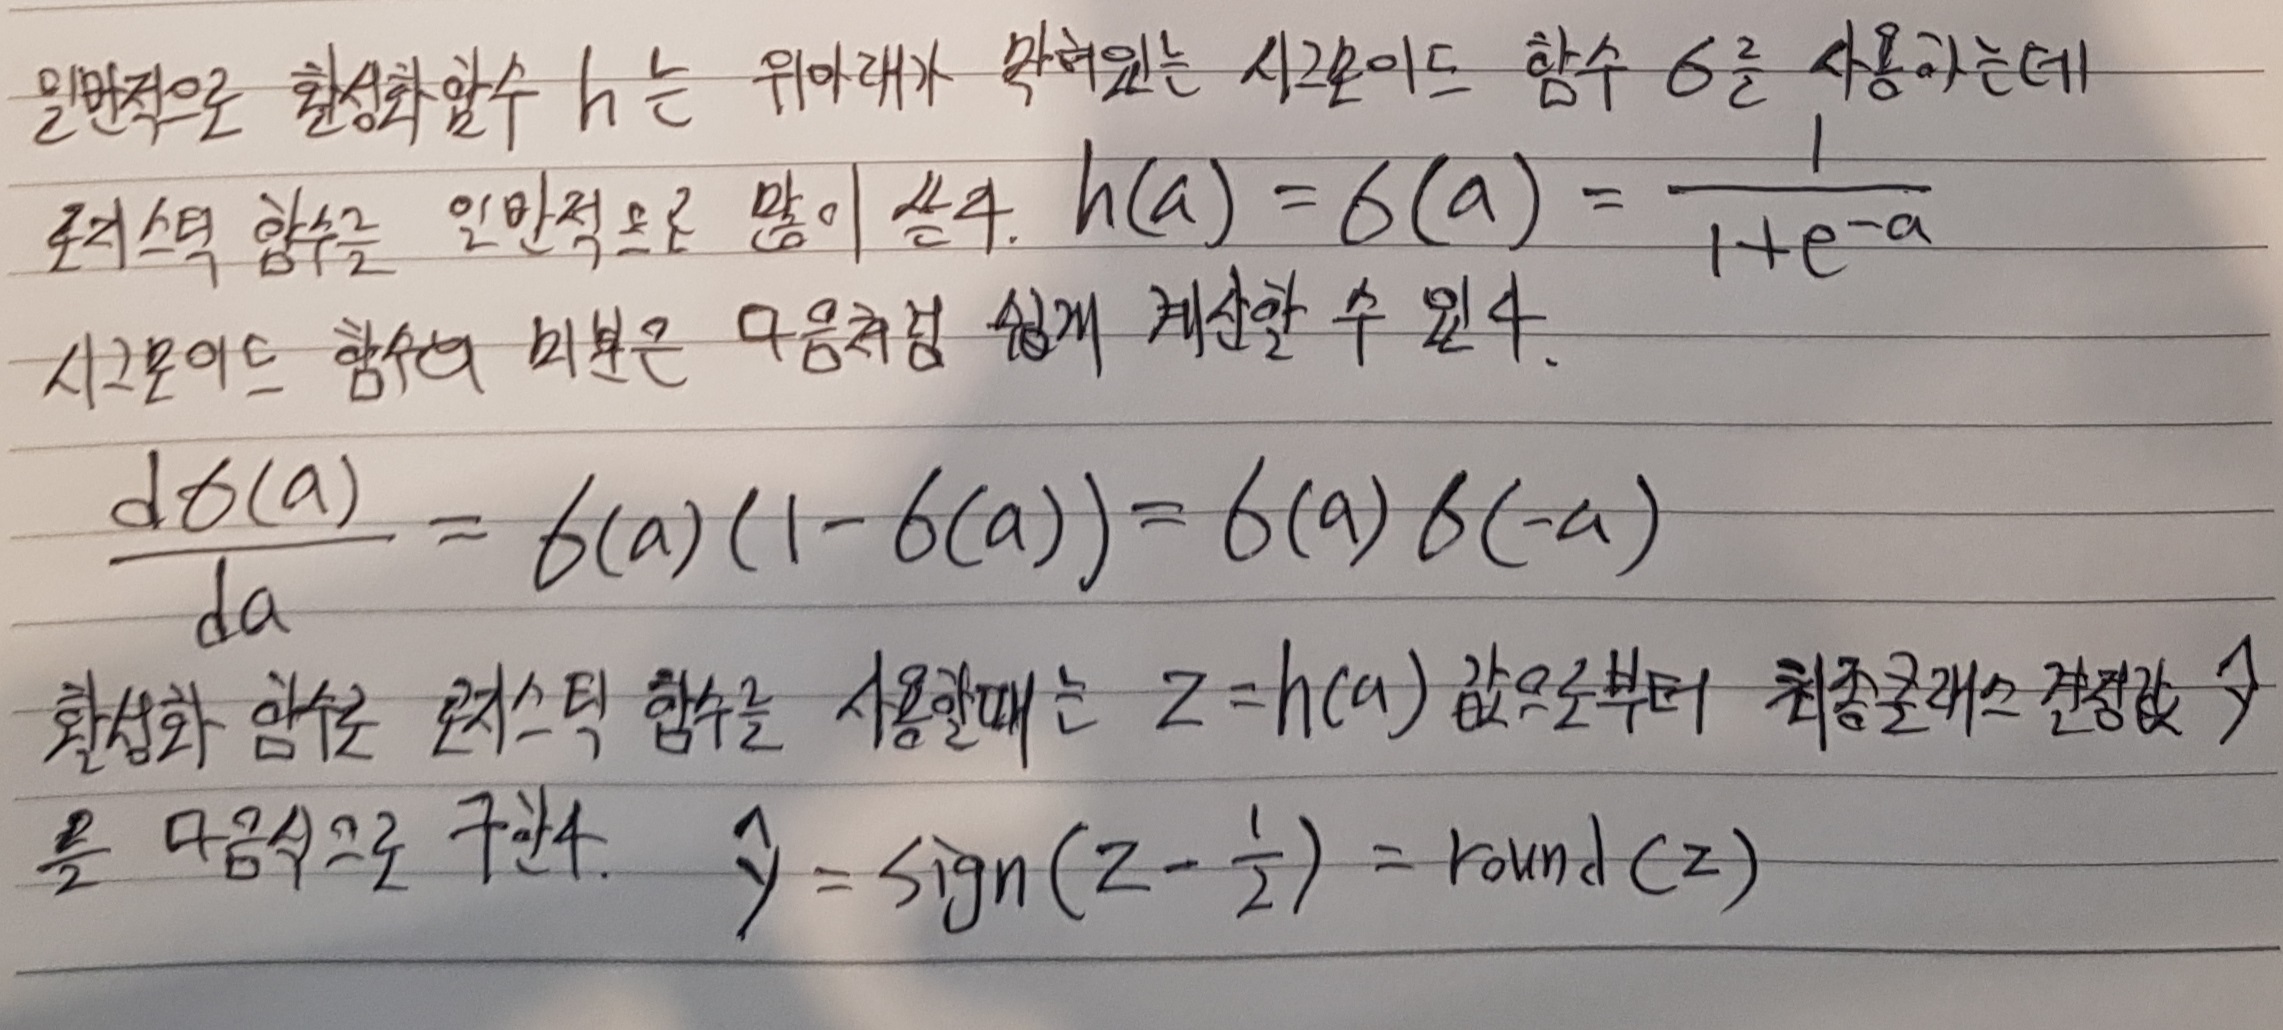 일반적으로 활성화함수 h는 위아래가 막혀있는 시그모이드 함수 σ를 사용하는데
로지스틱 함수를 일반적으로 많이 쓴다. h(a) = σ(a) = 1/(1+e^-a)
시그모이드 함수의 미분은 다음처럼 쉽게 계산할 수 있다.
dσ(a)/da = σ(a)(1-σ(a)) = σ(a)σ(-a)
활성화 함수로 로지스틱 함수를 사용할때는 z=h(a) 값으로부터 최종클래스 결정값 ŷ
을 다음식으로 구한다. ŷ = sign(z - 1/2) = round(z)